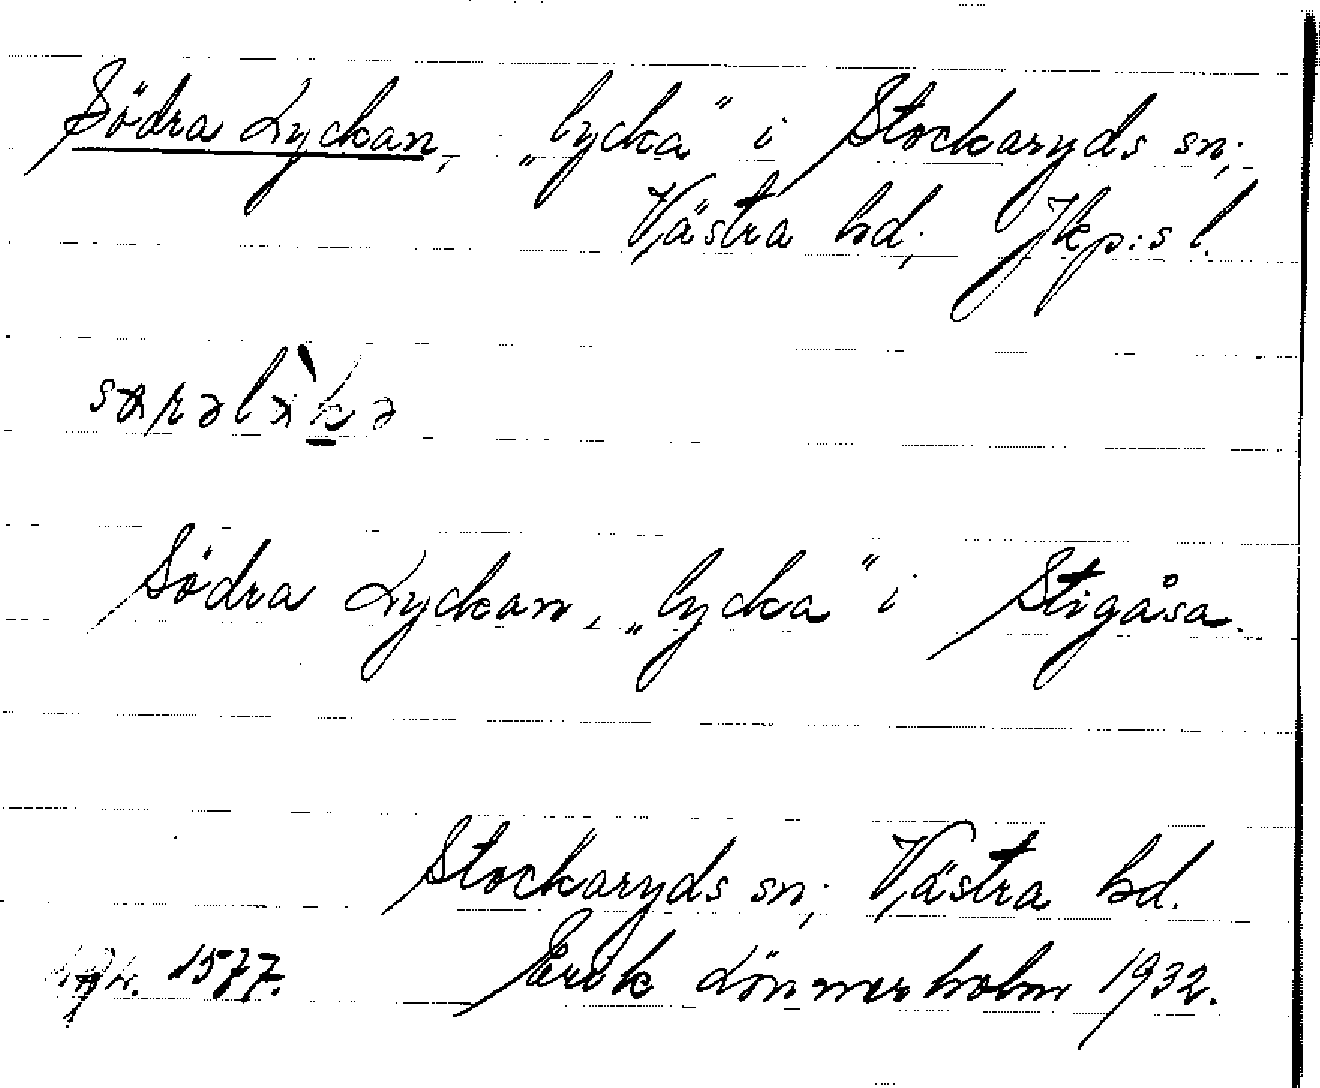 Södra Lyckan, „lycka” i Stockaryds sn;
Västra hd; Jkp:s l.
Södra Lyckan, „lycka” i Stigåsa.
Stockaryds sn; Västra hd.
1577. Erik Lönnerholm 1932.